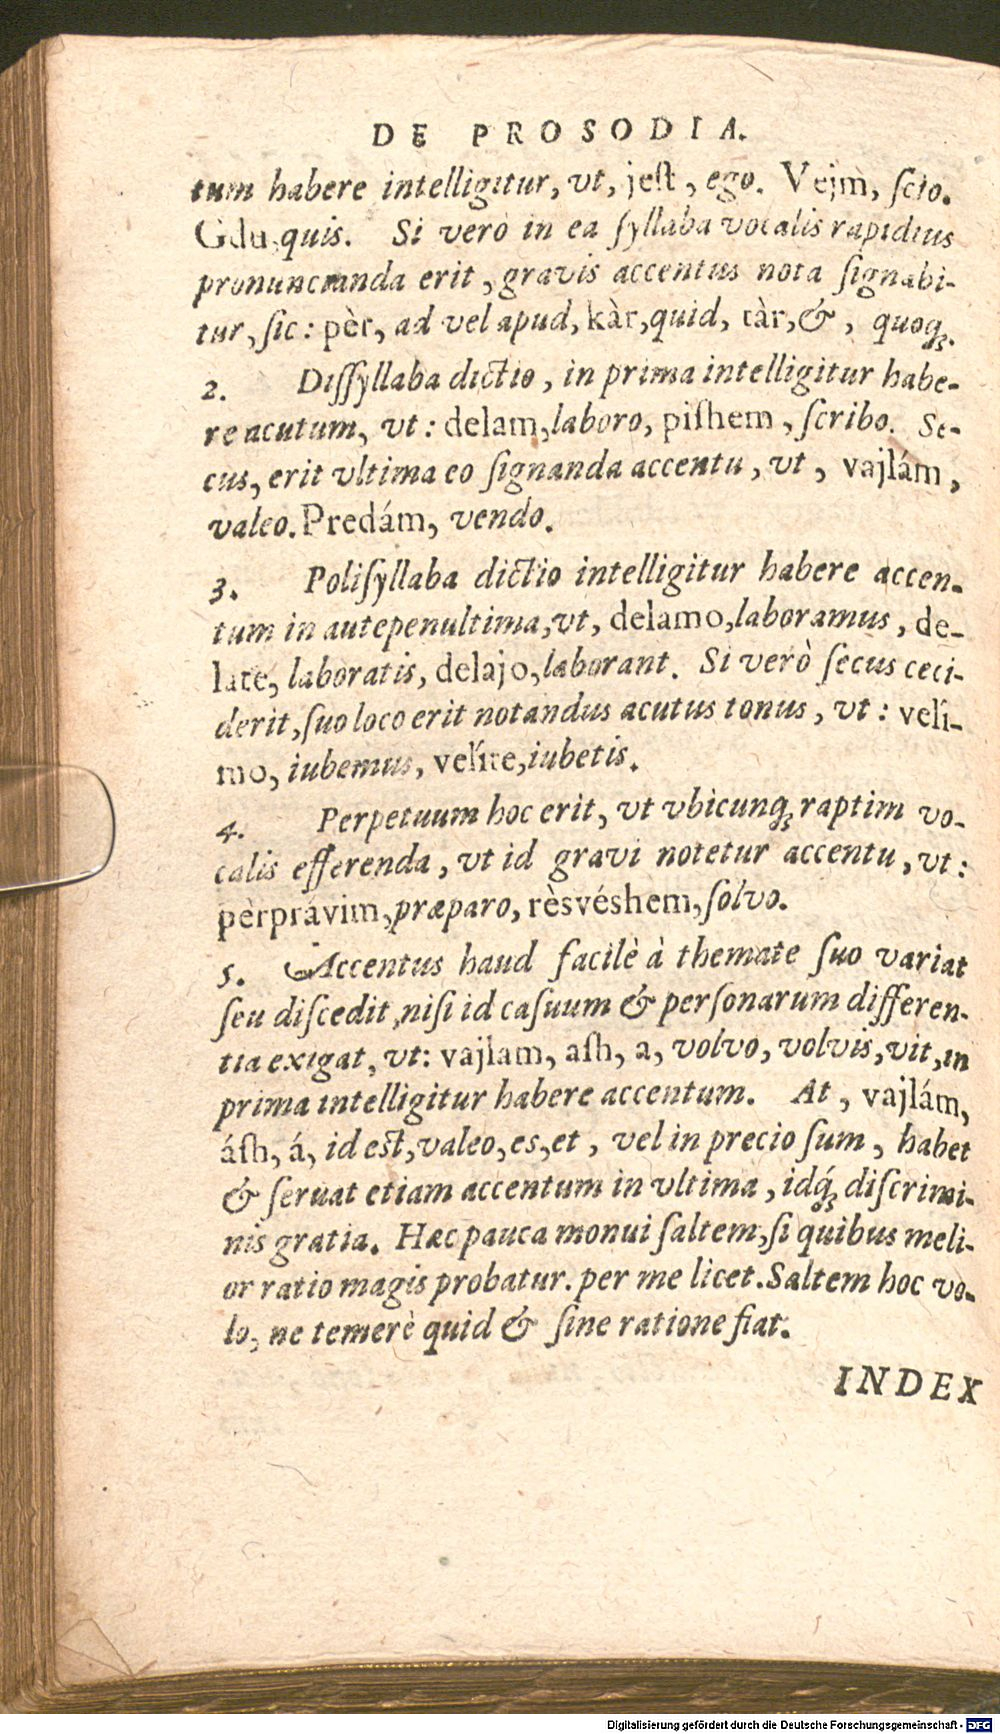 DE PROSODIA.
tum habere intelligitur, vt, jeſt, ego. Vejm, ſcio.
Gdu, quis. Si verò in ea ſyllaba vocalis rapidius
pronuncianda erit, gravis accentus nota ſignabi-
tur, ſic: pèr, ad vel apud, kàr, quid, tàr, &, quoq;.
2. Diſſyllaba dictio, in prima intelligitur habe-
re acutum, vt: delam, laboro, piſhem, ſcribo. Se-
cus, erit vltima eo ſignanda accentu, vt, vajlám,
valeo. Predám, vendo.
3. Poliſyllaba dictio intelligitur habere accen-
tum in autepenultima, vt, delamo, laboramus, de-
late, laboratis, delajo, laborant. Si verò ſecus ceci-
derit, ſuo loco erit notandus acutus tonus, vt: velí-
mo, iubemus, velíte, iubetis.
4. Perpetuum hoc erit, vt vbicunq; raptim vo-
calis efferenda, vt id gravi notetur accentu, vt:
pèrprávim, præparo, rèsvéshem, ſolvo.
5. Accentus haud facilè à themate ſuo variat
ſeu diſcedit, niſi id caſuum & perſonarum differen-
tia exigat, vt: vajlam, aſh, a, volvo, volvis, vit, in
prima intelligitur habere accentum. At, vajlám,
áſh, á, id eſt, valeo, es, et, vel in precio ſum, habet
& ſeruat etiam accentum in vltima, idq́; diſcrimi-
nis gratia. Hæc pauca monui ſaltem, ſi quibus meli-
or ratio magis probatur. per me licet. Saltem hoc vo-
lo, ne temerè quid & ſine ratione fiat.
INDEX
Digitalisierung gefördert durch die Deutsche Forschungsgemeinschaft - DFG